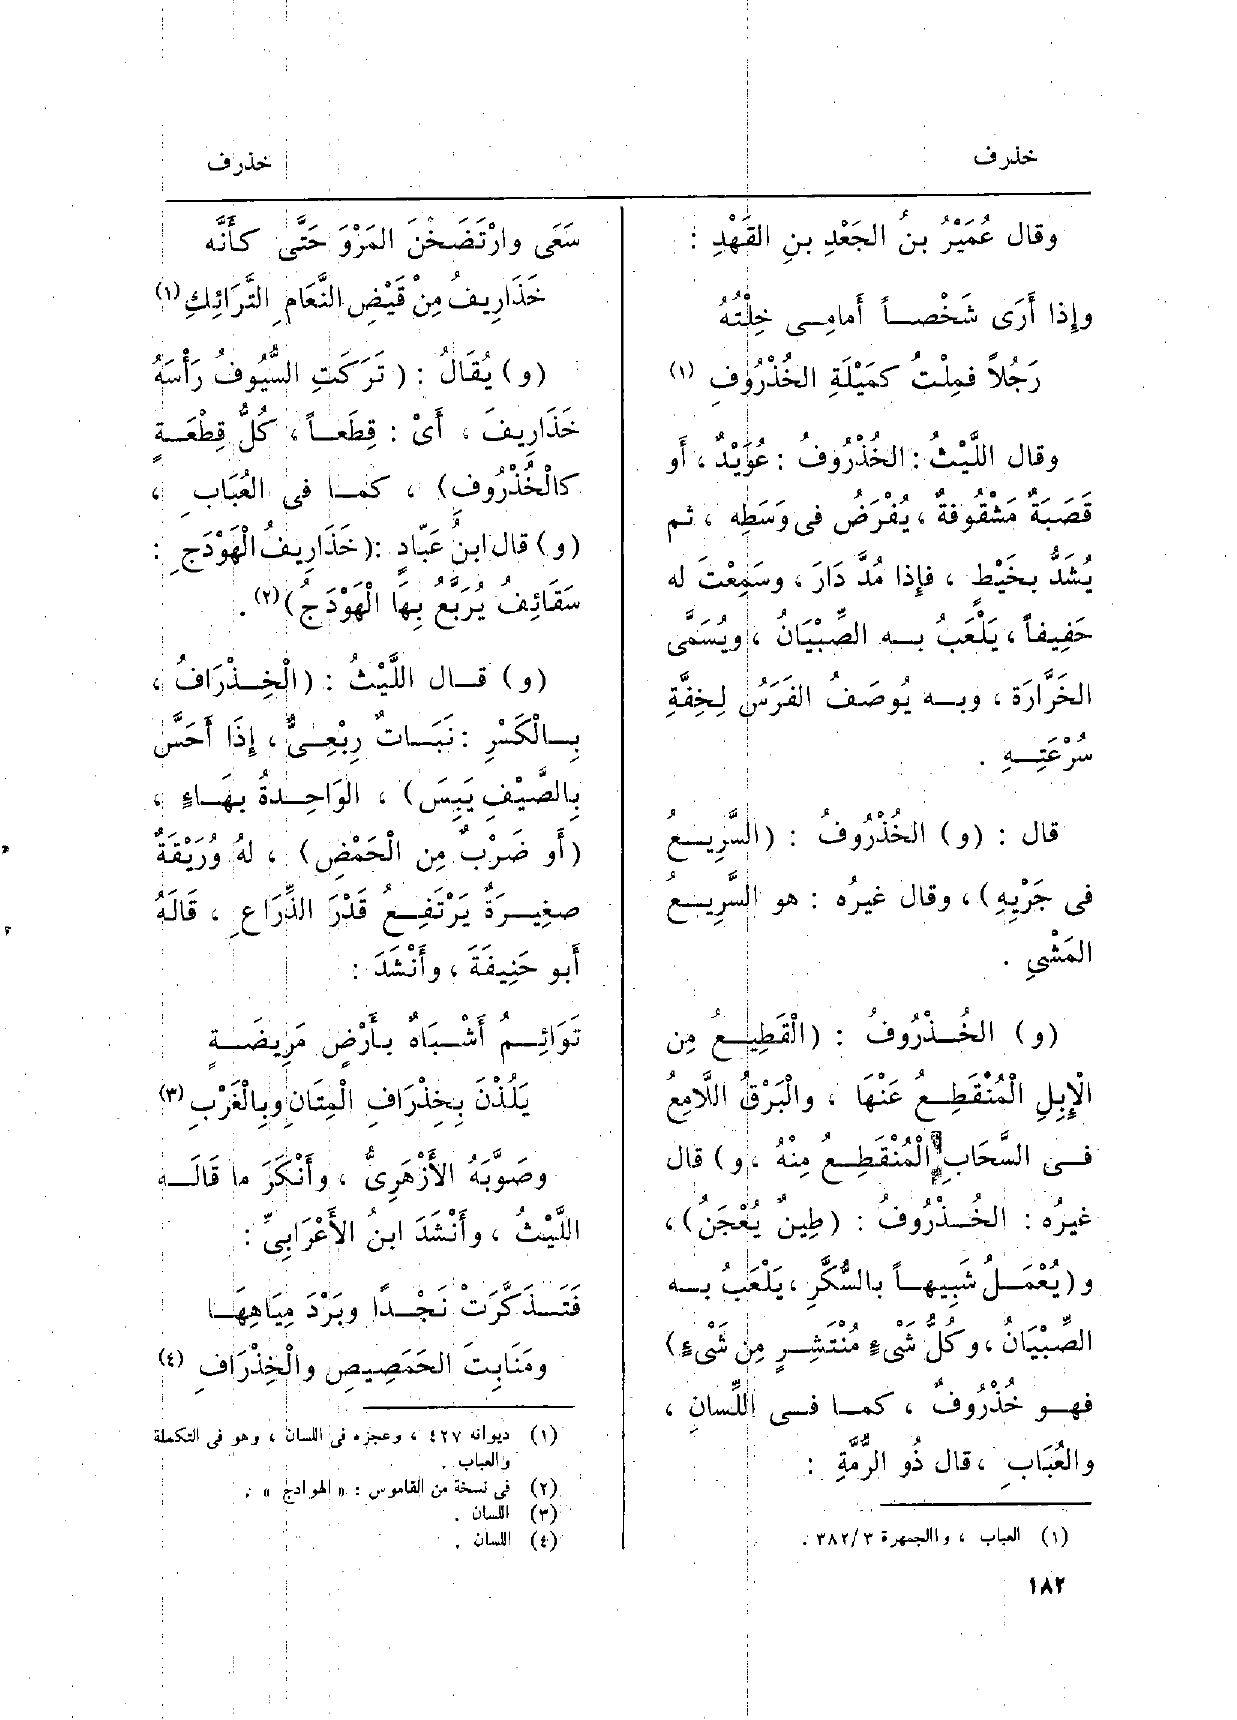 خذرف
خذرف
وقال عُمَيْرُ بنُ الجَعْدِ بنِ القَهْدِ :
وإذا أَرَى شَخْصاً أَمامِى خِلْتُهُ
رَجُلاً فمِلْتُ كمَيْلَةِ الخُذْرُوفِ (١)
وقال اللَّيْثُ : الخُذْرُوفُ : عُوَيْدٌ ، أو
قَصَبَةٌ مَشْقُوفةٌ ، يُفْرَضُ فى وَسَطِه ، ثم
يُشَدُّ بخَيْطٍ ، فإِذا مُدَّ دَارَ ، وسَمِعْتَ له
حَفِيفاً ، يَلْعَبُ بـه الصِّبْيَانُ ، ويُسَمَّى
الخَرَّارَة ، وبـه يُوصَفُ الفَرَسُ لِخِفَّةِ
سُرْعَتِـهِ .
قال : (و) الخُذْرُوفُ : (السَّرِيـعُ
فى جَرْيِهِ) ، وقال غيرُه : هو السَّرِيـع
المَشْيِ .
(و) الخُـذْرُوفُ : (الْقَطِيـعُ مِن
الْإِبِلِ الْمُنْقَطِـعُ عَنْهَا ، والْبَرْقُ اللَّامِعُ
فـى السَّحَابِ الْمُنْقَطِـعُ مِنْهُ ، و) قال
غيرُه : الخُـذْرُوفُ : (طِينٌ يُعْجَنُ) ،
و (يُعْمَـلُ شَبِيهـاً بالسُّكَّرِ ، يَلْعَبُ بـه
الصِّبْيَانُ ، وكُلُّ شَىْءٍ مُنْتَشِـرٍ مِن شَىْءٍ)
فهـو خُذْرُوفٌ ، كمـا فـى اللِّسانِ ،
والعُبَابِ ، قال ذُو الرُّمَّةِ :
(١) العباب ، واالجمهرة ٣٨٢/٣ .
١٨٢
سَعَى وارْتَضَخْنَ المَرْوَ حَتَّى كَأَنَّه
خَذَارِيفُ مِنْ قَيْضِ النَّعَامِ التَّرَائِكِ (١)
(و) يُقَالُ : (تَرَكَتِ السُّيُوفُ رَأْسَهُ
خَذَارِيفَ ، أَىْ : قِطَعـاً ، كُلُّ قِطْعَـةٍ
كالْخُذْرُوفِ) ، كمـا فى العُبَابِ ،
(و) قال ابنُ عَبَّادٍ : (خَذَارِيفُ الْهَوْدَجِ :
سَقَائِفُ يُرَبَّعُ بِهَا الْهَوْدَجُ) (٢) .
(و) قـال اللَّيْثُ : (الْخِـذْرَافُ ،
بِـالْكَسْرِ : نَبَـاتٌ رِبْعِـىٌّ ، إِذَا أَحَسَّ
بِالصَّيْفِ يَبِسَ) ، الوَاحِـدةُ بِهَـاءٍ ،
(أَو ضَرْبٌ مِن الْحَمْضِ) ، لهُ وُرَيْقَةٌ
صغِيـرَةٌ يَرْتَفِـعُ قَدْرَ الذِّرَاعِ ، قَالَهُ
أَبو حَنِيفَةَ ، وأَنْشَدَ :
تَوَائِـمُ أَشْـبَاهٌ بـأَرْضٍ مَرِيضَـةٍ
يَلُذْنَ بِخِذْرَافِ الْمِتَانِ وبِالْغَرْبِ (٣)
وصَوَّبَهُ الأَزْهَرِىُّ ، وأَنْكَرَ ما قَالَـه
اللَّيْثُ ، وأَنْشَدَ ابنُ الأَعْرَابِيِّ :
فَتَـذَكَّرَتْ نَجْـدًا وبَرْدَ مِيَاهِهَـا
ومَنَابِتَ الحَمَصِيصِ والْخِذْرَافِ (٤)
(١) ديوانه ٤٢٧ ، وعجزه فى اللسان ، وهو فى التكملة
والعباب .
(٢) فى نسخة من القاموس : « الهوادج » .
(٣) اللسان .
(٤) اللسان .